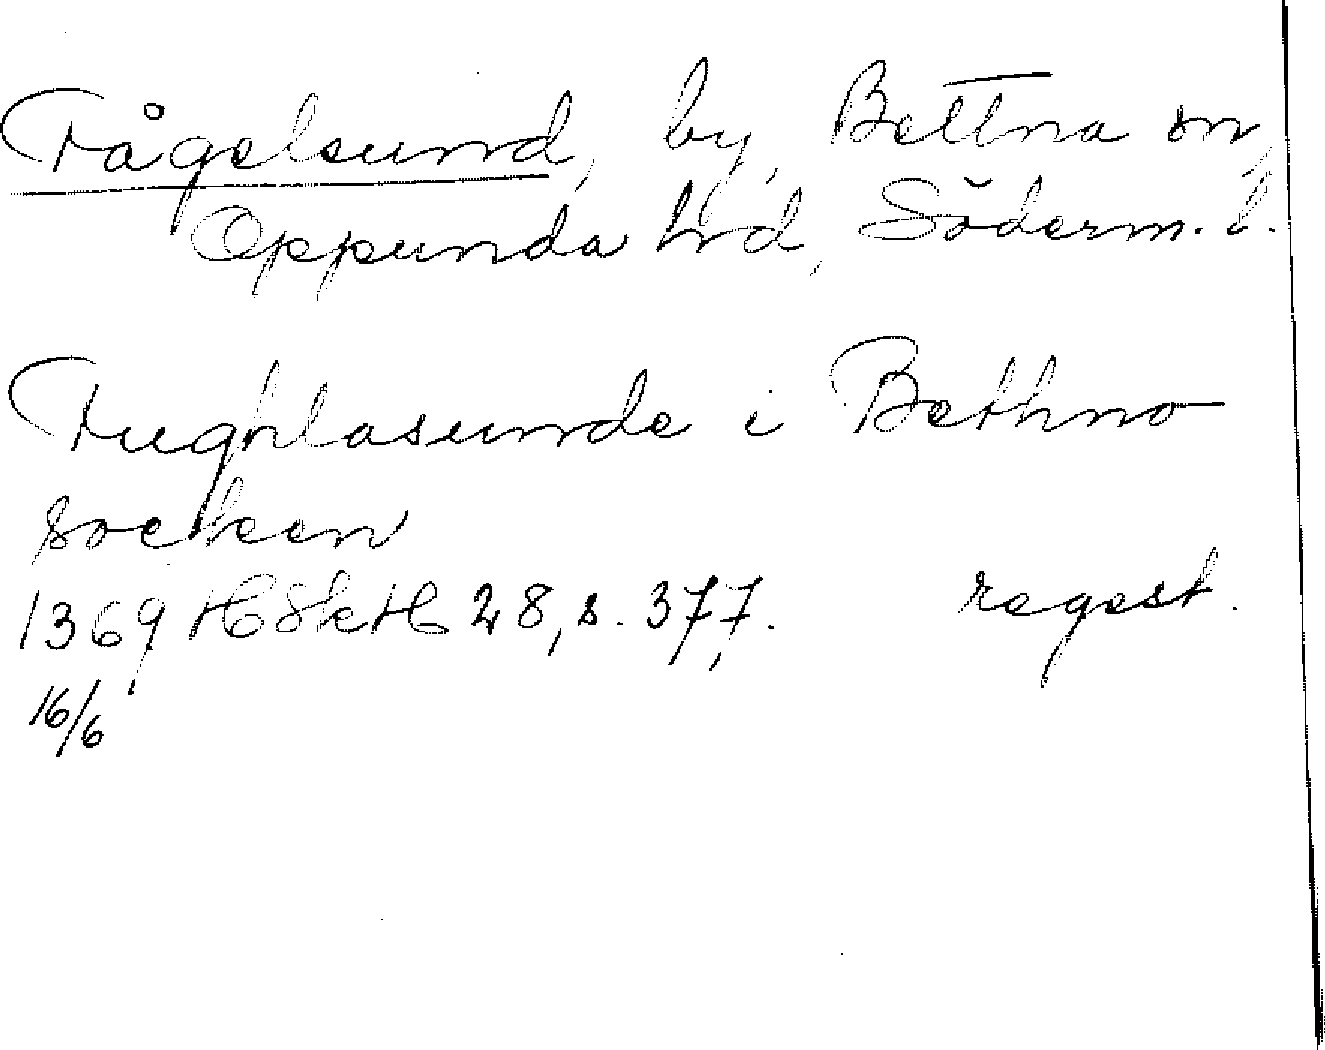 Fågelsund, by, Bettna sn,
Oppunda hrd, Söderm. l.
Fughlasunde i Bethno
socken
1369 HSkH 28, s. 377. regest.
16/6